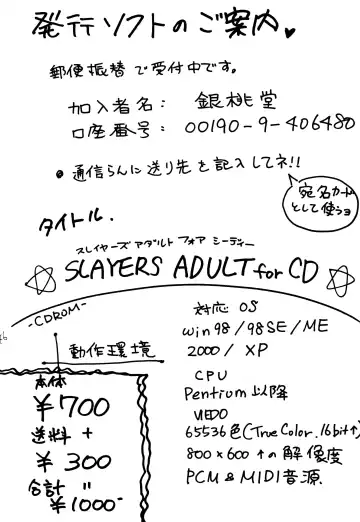 発行ソフトのご案内♥
郵便振替で受付中です。
加入者名: 銀桃堂
口座番号: 00190-9-406480
●通信らんに送り先を記入してネ!!
宛名カードとして使うヨ
タイトル.
スレイヤーズ アダルト フォア シーディー
SLAYERS ADULT for CD
-CDROM-
動作環境
対応 OS
win 98/98SE/ME
2000/XP
CPU
Pentium以降
VIEDO
65536色(True Color.16bit↑)
800×600↑の解像度
PCM & MIDI音源
本体
¥700
送料 +
¥300
合計 〃
¥1000-